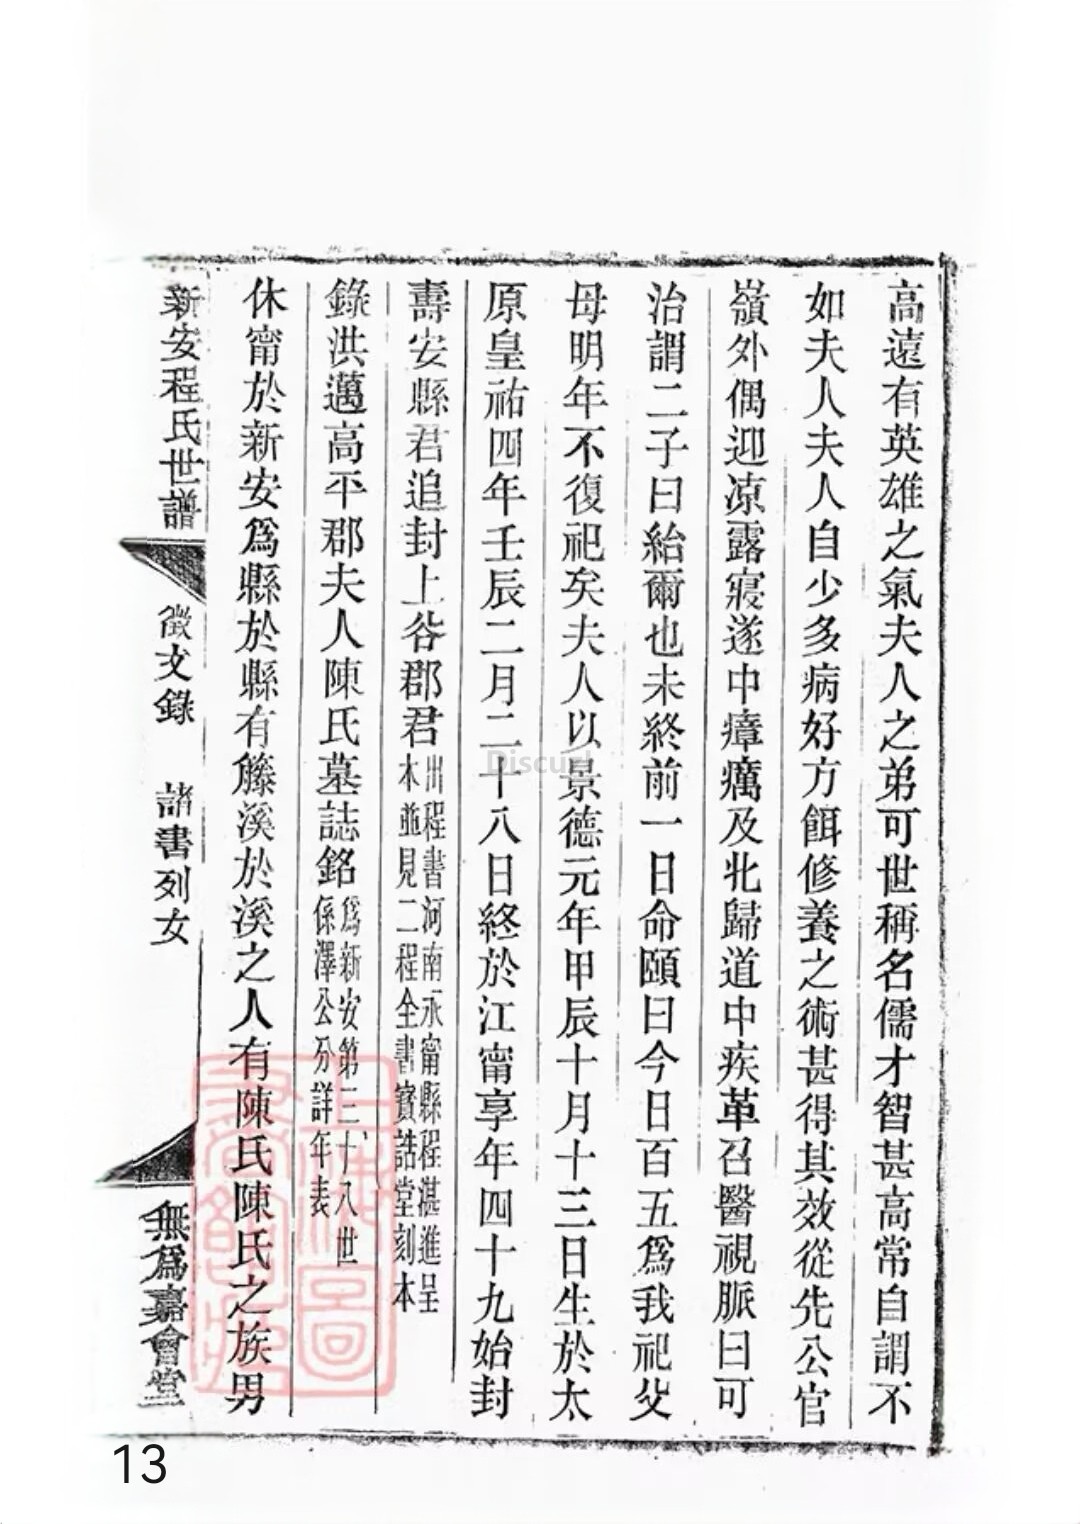 高遠有英雄之氣夫人之弟可世稱名儒才智甚高常自謂不
如夫人夫人自少多病好方餌修養之術甚得其效從先公官
嶺外偶迎涼露寢遂中瘴癘及北歸道中疾革召醫視脈曰可
治謂二子曰紿爾也未終前一日命頤曰今日百五爲我祀父
母明年不復祀矣夫人以景德元年甲辰十月十三日生於太
原皇祐四年壬辰二月二十八日終於江甯享年四十九始封
壽安縣君追封上谷郡君
出程書河南永甯縣程湛進呈
本並見二程全書寶誥堂刻本
錄洪邁高平郡夫人陳氏墓誌銘
爲新安第三十八世
係澤公分詳年表
休甯於新安爲縣於縣有籐溪於溪之人有陳氏陳氏之族男
新安程氏世譜
徵文錄
諸書列女
無爲嘉會堂
上海圖書館藏
Discuz!
13